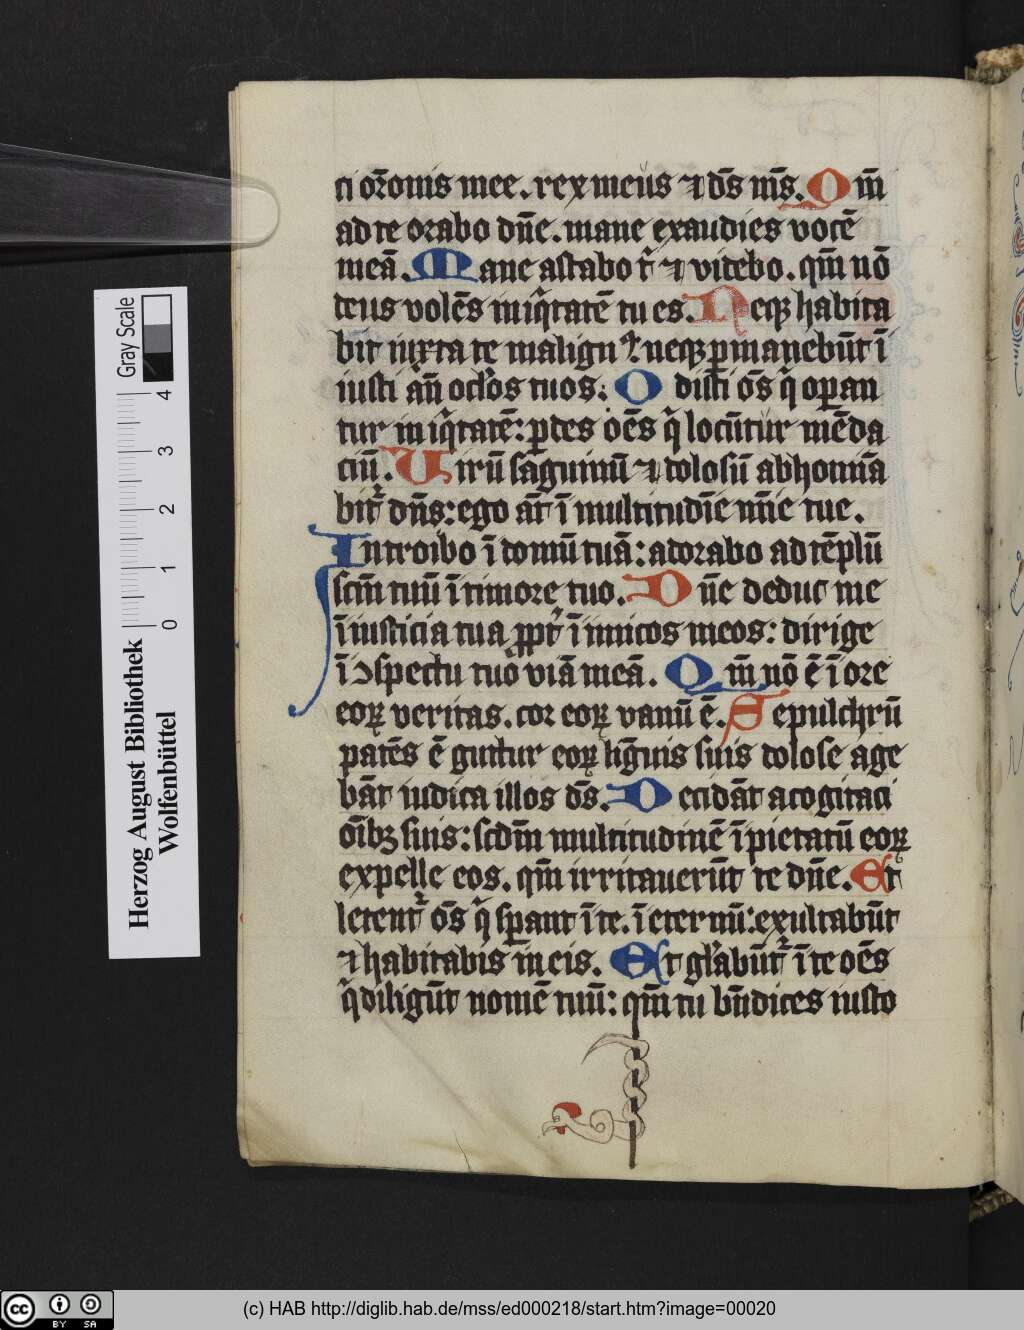 ti or̄onis mee. rex meus ⁊ ds̄ ms̄. Q m̄
ad te orabo dn̄e. mane exaudies vocē
meā. Mane astabo t̄ ⁊ videbo. qm̄ nō
deus volēs iniq̇tatē tu es. Neqꝫ habita
bit iuxta te malignꝰ: neqꝫ ꝑmanebūt ī
iusti an̄ oclōs tuos: Odisti ōs q̇ oꝑan
tur iniq̇tatē: ꝑdes oēs q̇ locūtur mēda
ciū. Uirū sāguinū ⁊ dolosū abhomīa
bit᷑ dn̄s: ego āt ī multitudīe mīe tue.
Introibo ī domū tuā: adorabo ad tēplū
scm̄ tuū ī timore tuo. Dn̄e deduc me
ī iusticia tua ꝓpt̄ īimicos meos: dirige
ī ↄspectu tuo viā meā. Qm̄ nō ē ī ore
eoꝝ veritas. cor eoꝝ vanū ē. Sepulchrū
patēs ē guttur eoꝝ līguis suis dolose age
bāt iudica illos ds̄. Decidāt a cogitaci
oībꝫ suis: scdm̄ multitudinē īpietatū eoꝝ
expelle eos. qm̄ irritauerūt te dn̄e. Et
letent᷑ ōs q̇ sꝑant ī te. ī eternū: exultabūt
⁊ habitabis in eis. Et gl̄abūt᷑ ī te oēs
q̇ diligūt nomē tuū: qm̄ tu bn̄dices iusto
Gray Scale
0 1 2 3 4
Herzog August Bibliothek
Wolfenbüttel
cc BY SA
(c) HAB http://diglib.hab.de/mss/ed000218/start.htm?image=00020